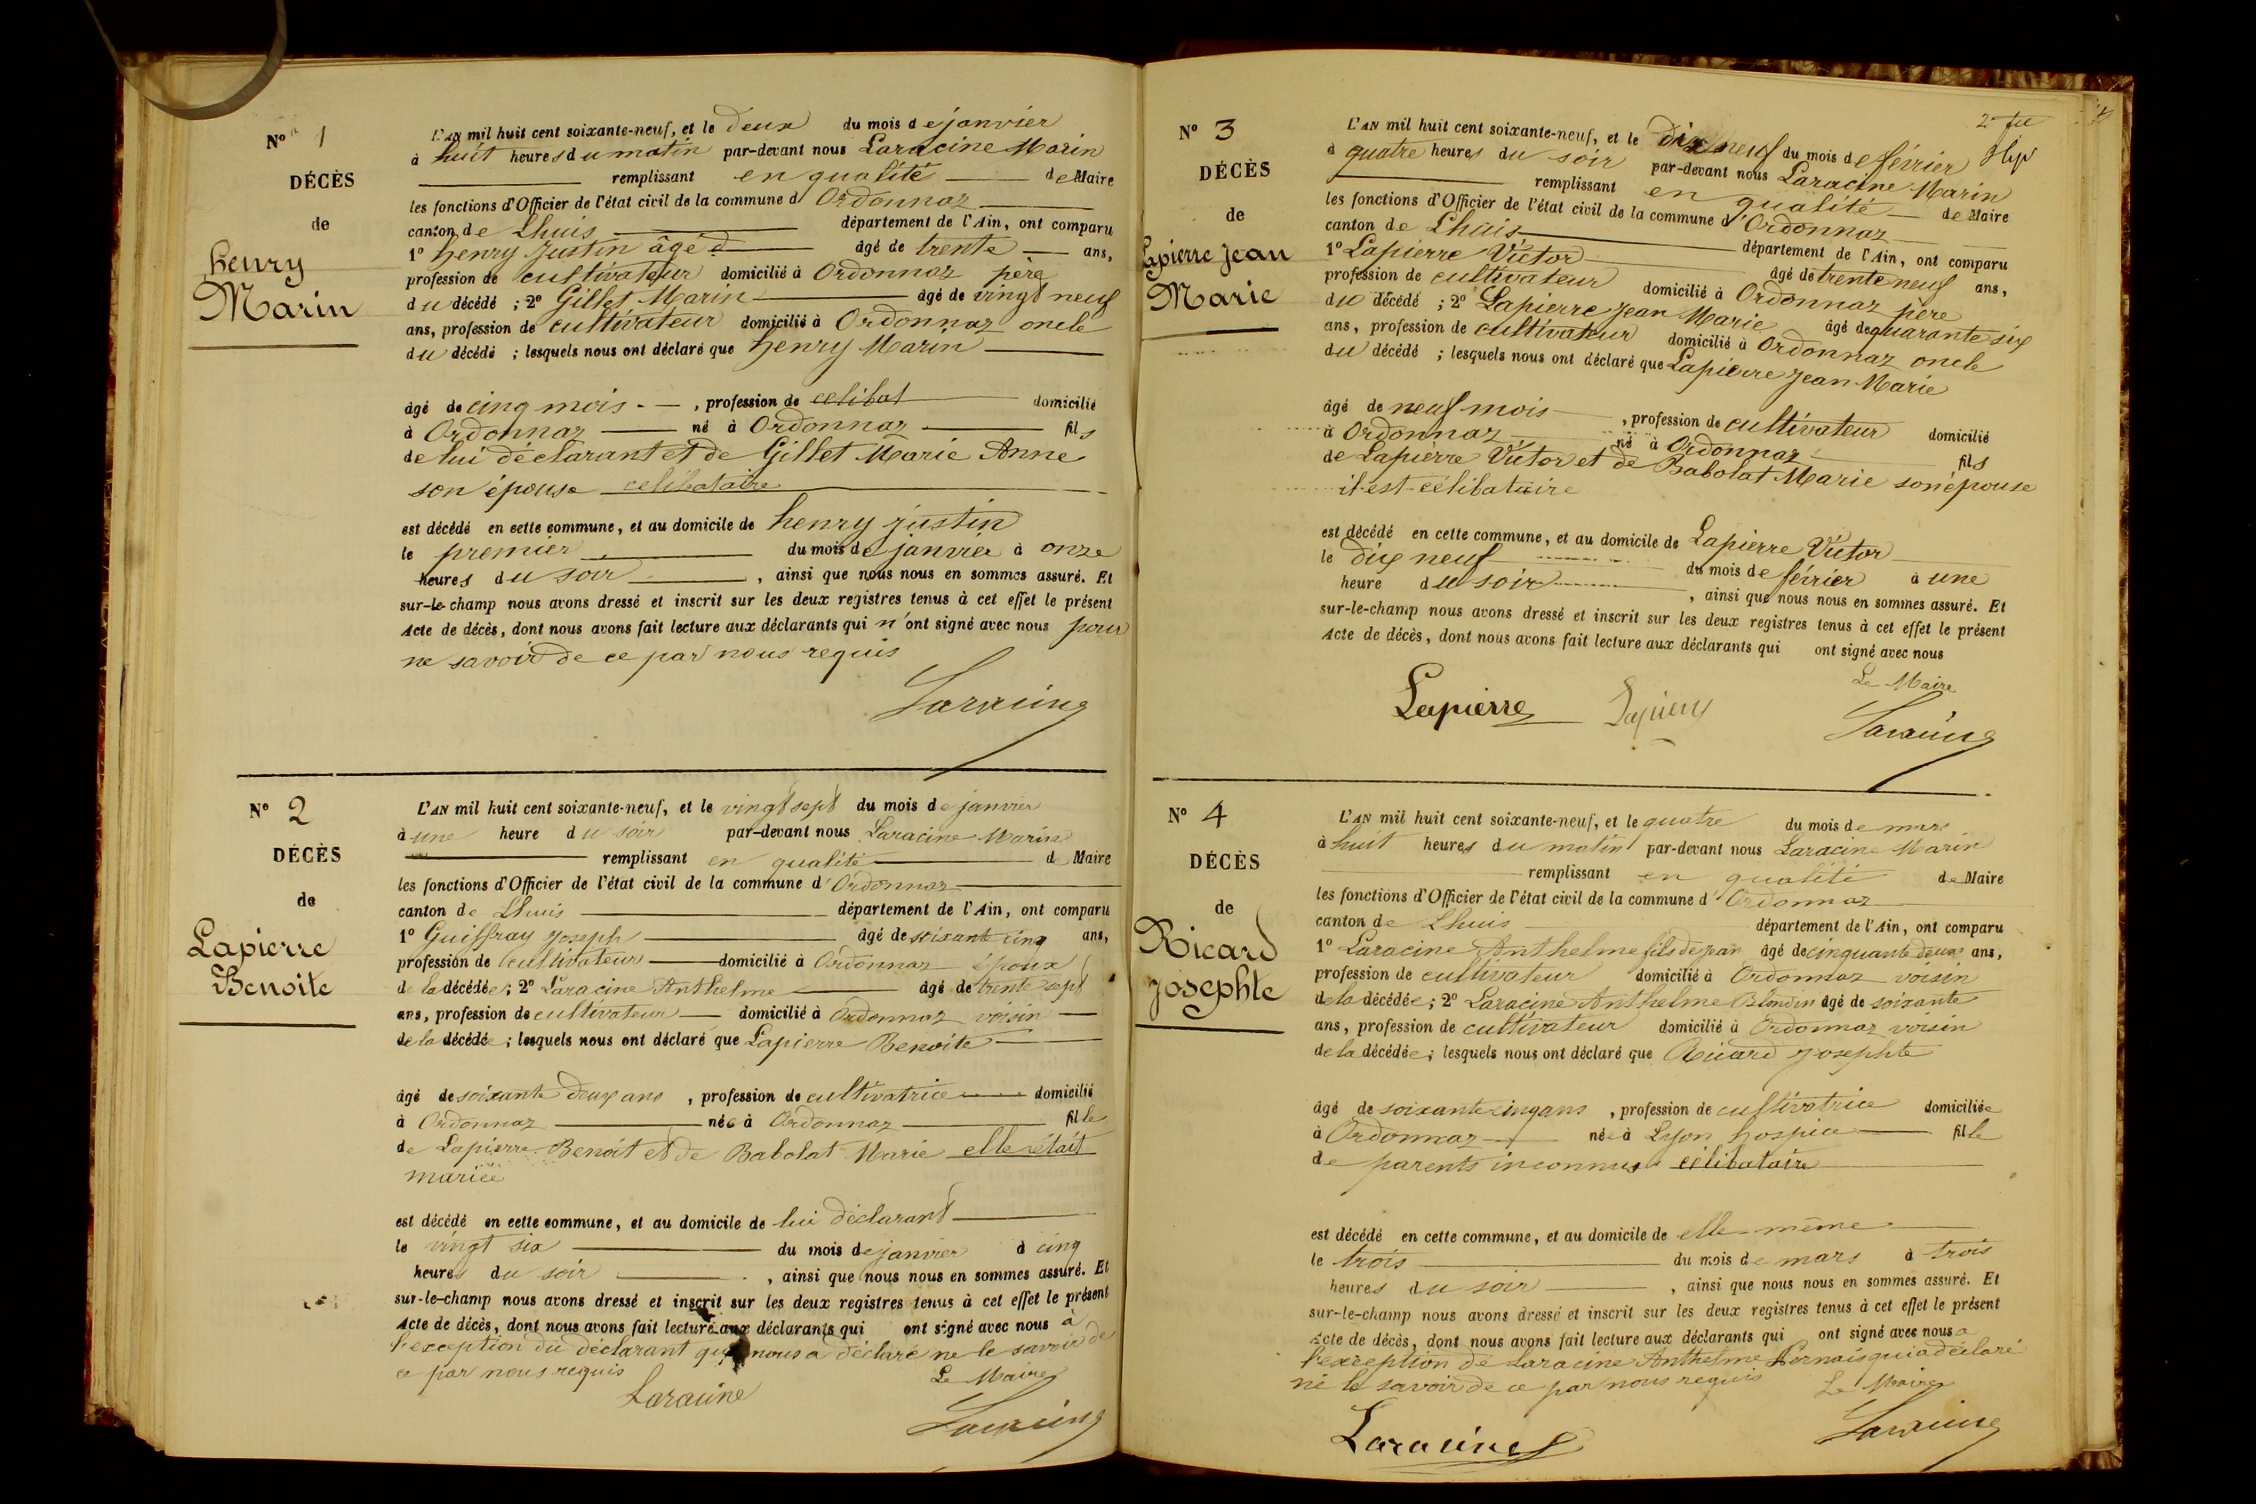 Nº 1
DÉCÈS
de
henry
Marin
L'AN mil huit cent soixante-neuf, et le deux du mois de janvier
à huit heures du matin par-devant nous Laracine Marin
remplissant en qualité de Maire
les fonctions d'Officier de l'état civil de la commune d'Ordonnaz
canton de Lhuis département de l'Ain, ont comparu
1º henry Justin âgé d âgé de trente ans,
profession de cultivateur domicilié à Ordonnaz père
du décédé ; 2º Gillet Marin âgé de vingt neuf
ans, profession de cultivateur domicilié à Ordonnaz oncle
du décédé ; lesquels nous ont déclaré que henry Marin
âgé de cinq mois , profession de celibat domicilié
à Ordonnaz né à Ordonnaz fils
de lui déclarant et de Gillet Marie Anne
son épouse celibataire
est décédé en cette commune, et au domicile de henry justin
le premier du mois de janvier à onze
heures du soir , ainsi que nous nous en sommes assuré. Et
sur-le-champ nous avons dressé et inscrit sur les deux registres tenus à cet effet le présent
Acte de décès, dont nous avons fait lecture aux déclarants qui n'ont signé avec nous pour
ne savoir de ce par nous requis
Laracine
Nº 2
DÉCÈS
de
Lapierre
Benoite
L'AN mil huit cent soixante-neuf, et le vingt sept du mois de janvier
à une heure du soir par-devant nous Laracine Marin
remplissant en qualité de Maire
les fonctions d'Officier de l'état civil de la commune d'Ordonnaz
canton de Lhuis département de l'Ain, ont comparu
1º Guiffray Joseph âgé de soixant cinq ans,
profession de cultivateur domicilié à Ordonnaz époux
de la décédée ; 2º Laracine Anthelme âgé de trente sept
ans, profession de cultivateur domicilié à Ordonnaz voisin
de la décédée ; lesquels nous ont déclaré que Lapierre Benoite
âgé de soixante deux ans , profession de cultivatrice domicilié
à Ordonnaz née à Ordonnaz fille
de Lapierre Benoit et de Babolat Marie elle était
mariée
est décédé en cette commune, et au domicile de lui déclarant
le vingt six du mois de janvier à cinq
heures du soir , ainsi que nous nous en sommes assuré. Et
sur-le-champ nous avons dressé et inscrit sur les deux registres tenus à cet effet le présent
Acte de décès, dont nous avons fait lecture aux déclarants qui ont signé avec nous à
l'exception du déclarant qui nous a déclaré ne le savoir de
ce par nous requis
Le Maire
Laracine
Laracine
2e fe
Nº 3
DÉCÈS
de
Lapierre Jean
Marie
L'AN mil huit cent soixante-neuf, et le dix neuf du mois de février
à quatre heures du soir par-devant nous Laracine Marin
remplissant en qualité de Maire
les fonctions d'Officier de l'état civil de la commune d'Ordonnaz
canton de Lhuis département de l'Ain, ont comparu
1º Lapierre Victor âgé de trente neuf ans,
profession de cultivateur domicilié à Ordonnaz père
du décédé ; 2º Lapierre Jean Marie âgé de quarante six
ans, profession de cultivateur domicilié à Ordonnaz oncle
du décédé ; lesquels nous ont déclaré que Lapierre Jean Marie
âgé de neuf mois , profession de cultivateur domicilié
à Ordonnaz né à Ordonnaz fils
de Lapierre Victor et de Babolat Marie son épouse
il est célibataire
est décédé en cette commune, et au domicile de Lapierre Victor
le dix neuf du mois de février à une
heure du soir , ainsi que nous nous en sommes assuré. Et
sur-le-champ nous avons dressé et inscrit sur les deux registres tenus à cet effet le présent
Acte de décès, dont nous avons fait lecture aux déclarants qui ont signé avec nous
Le Maire
Lapierre Lapierre Laracine
Nº 4
DÉCÈS
de
Ricard
Josephte
L'AN mil huit cent soixante-neuf, et le quatre du mois de mars
à huit heures du matin par-devant nous Laracine Marin
remplissant en qualité de Maire
les fonctions d'Officier de l'état civil de la commune d'Ordonnaz
canton de Lhuis département de l'Ain, ont comparu
1º Laracine Anthelme fils de Jean âgé de cinquante deux ans,
profession de cultivateur domicilié à Ordonnaz voisin
de la décédée ; 2º Laracine Anthelme Blondin âgé de soixante
ans, profession de cultivateur domicilié à Ordonnaz voisin
de la décédée ; lesquels nous ont déclaré que Ricard Josephte
âgé de soixante cinq ans , profession de cultivatrice domiciliée
à Ordonnaz née à Lyon hospice fille
de parents inconnus célibataire
est décédé en cette commune, et au domicile de elle même
le trois du mois de mars à trois
heures du soir , ainsi que nous nous en sommes assuré. Et
sur-le-champ nous avons dressé et inscrit sur les deux registres tenus à cet effet le présent
Acte de décès, dont nous avons fait lecture aux déclarants qui ont signé avec nous a
l'exception de Laracine Anthelme qui a déclaré
ne le savoir de ce par nous requis Le Maire
Laracine Laracine